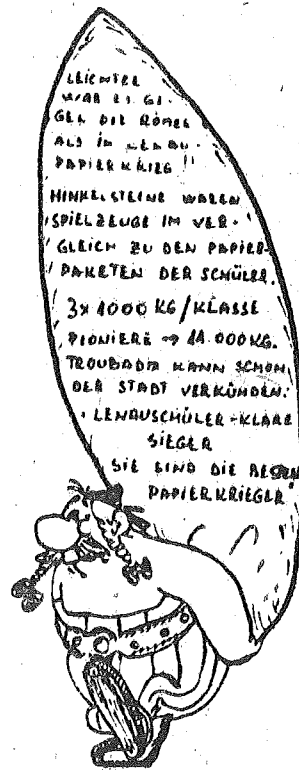 LEICHTER
WAR ES GE-
GEN DIE RÖMER
ALS IM LENAU-
PAPIERKRIEG!
HINKELSTEINE WAREN
SPIELZEUGE IM VER-
GLEICH ZU DEN PAPIER-
PAKETEN DER SCHÜLER.
3x 1000 KG/KLASSE
PIONIERE → 11.000 KG.
TROUBADIX KANN SCHON
DER STADT VERKÜNDEN:
LENAUSCHÜLER - KLARE
SIEGER
SIE SIND DIE BESTEN
PAPIERKRIEGER